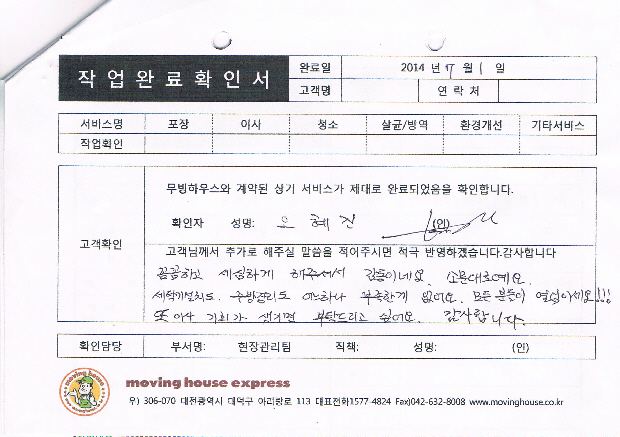 작업완료확인서
완료일 2014 년 17 월 1 일
고객명 연락처
서비스명 포장 이사 청소 살균/방역 환경개선 기타서비스
작업확인
고객확인
무빙하우스와 계약된 상기 서비스가 제대로 완료되었음을 확인합니다.
확인자 성명: 오혜진 (인)
고객님께서 추가로 해주실 말씀을 적어주시면 적극 반영하겠습니다.감사합니다
꼼꼼하고 세심하게 해주셔서 감동이네요. 소문대로예요.
세탁기설치도. 주방정리도 어느하나 부족한게 없어요. 모든 분들이 열심이세요!!!
또 이사 기회가 생기면 부탁드리고 싶어요. 감사합니다.
확인담당 부서명: 현장관리팀 직책: 성명: (인)
moving house
moving house express
우) 306-070 대전광역시 대덕구 아리랑로 113 대표전화1577-4824 Fax)042-632-8008 www.movinghouse.co.kr